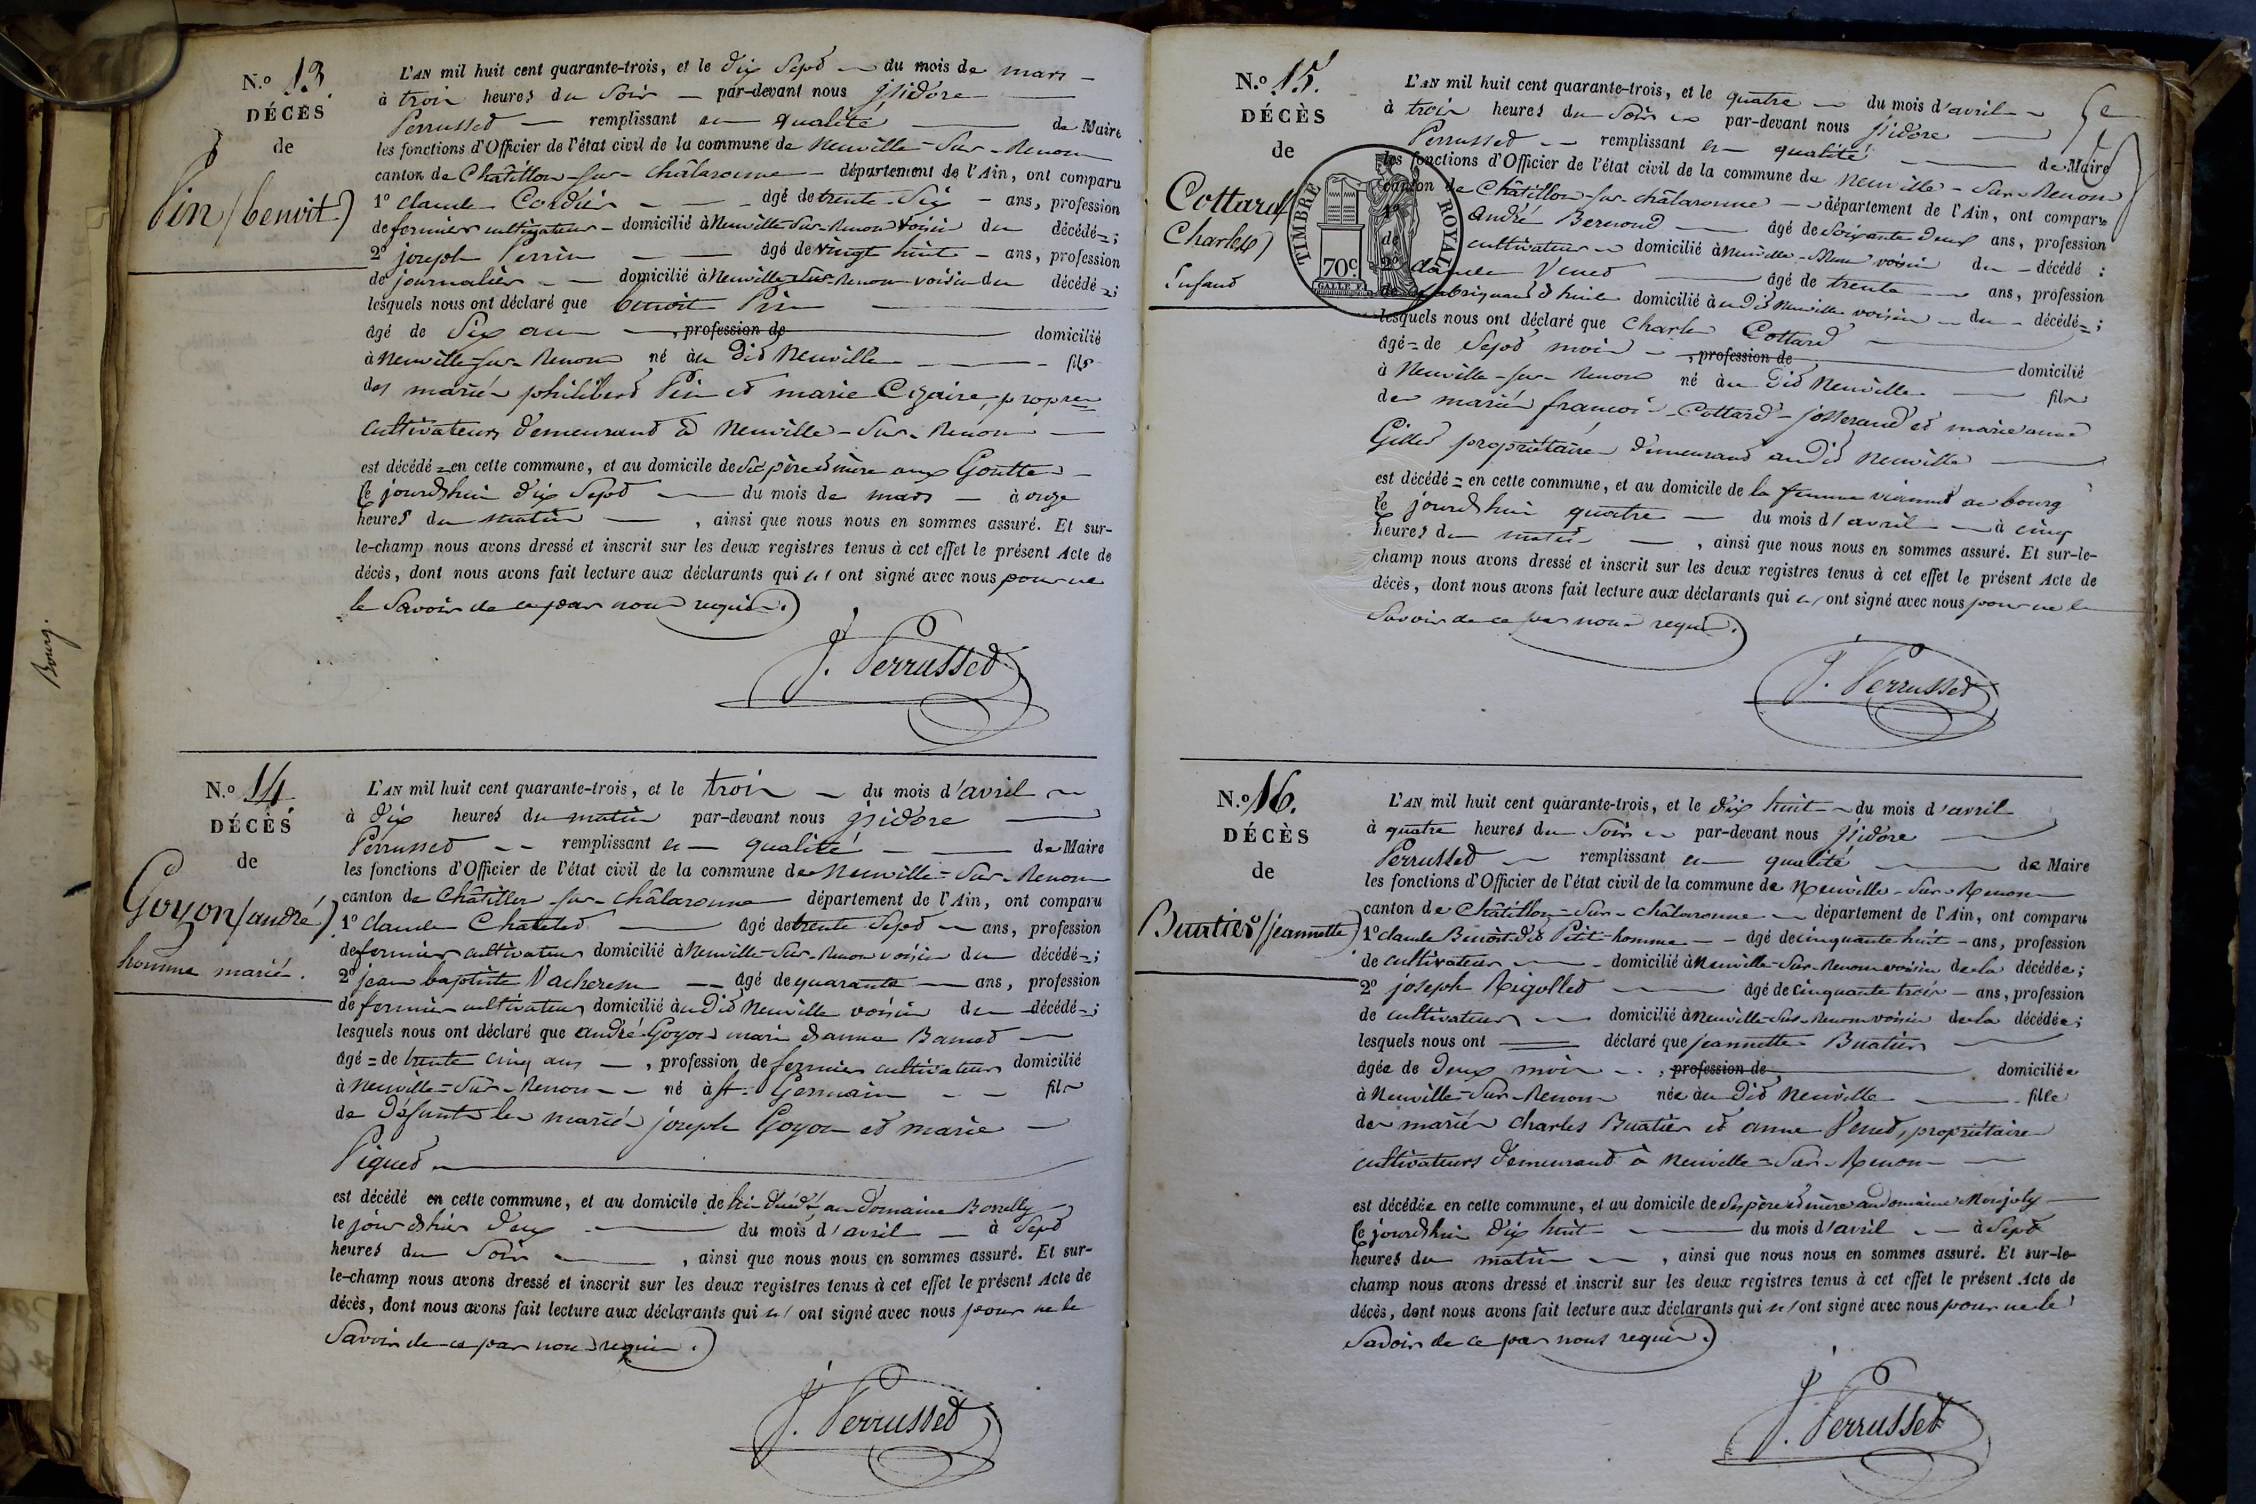 N.º 13.
DÉCÈS
de
Pin (benoit)
L'AN mil huit cent quarante-trois, et le dix Sept du mois de mars
à trois heures du Soir par-devant nous jsidore
Perrusset remplissant en qualité de Maire
les fonctions d'Officier de l'état civil de la commune de Neuville-Sur-Renom
canton de Châtillon-sur-châlaronne département de l'Ain, ont comparu
1º claude Cordier âgé de trente-Six ans, profession
de fermier cultivateur domicilié à Neuville-Sur-Renom voisin du décédé=;
2º joseph Perrin âgé de vingt huit ans, profession
de journalier domicilié à Neuville-Sur-Renom voisin du décédé=;
lesquels nous ont déclaré que benoit Pin
âgé de Six ans, profession de domicilié
à Neuville-sur-Renom né au dit Neuville fils
des mariés philibert Pin et marie Cizaire, propres
cultivateurs demeurant à Neuville-Sur-Renom
est décédé=en cette commune, et au domicile de Ses père et mère aux Gouttes
Ce jourd'hui dix Sept du mois de mars à onze
heures du matin, ainsi que nous nous en sommes assuré. Et sur-
le-champ nous avons dressé et inscrit sur les deux registres tenus à cet effet le présent Acte de
décès, dont nous avons fait lecture aux déclarants qui n'ont signé avec nous pour ne
le Savoir de ce par nous requis.
J. Perrusset
Bourg.
N.º 14
DÉCÈS
de
Goyon (andré)
homme marié.
L'AN mil huit cent quarante-trois, et le trois du mois d'avril
à dix heures du matin par-devant nous jsidore
Perrusset remplissant en qualité de Maire
les fonctions d'Officier de l'état civil de la commune de Neuville-Sur-Renom
canton de Châtillon-sur-châlaronne département de l'Ain, ont comparu
1º claude Chatelet âgé de trente Sept ans, profession
de fermier cultivateur domicilié à Neuville-Sur-Renom voisin du décédé=;
2º jean baptiste Vacheresse âgé de quarante ans, profession
de fermier cultivateur domicilié au dit Neuville voisin du décédé=;
lesquels nous ont déclaré que andré Goyon mari d'anne
âgé=de trente cinq ans, profession de fermier cultivateur domicilié
à Neuville-Sur-Renom né à St. Germain fils
de défunts les mariés joseph Goyon et marie
Piquet
est décédé en cette commune, et au domicile de au domaine
le jour d'hier deux du mois d'avril à Sept
heures du Soir, ainsi que nous nous en sommes assuré. Et sur-
le-champ nous avons dressé et inscrit sur les deux registres tenus à cet effet le présent Acte de
décès, dont nous avons fait lecture aux déclarants qui n'ont signé avec nous pour ne le
Savoir de ce par nous requis.
J. Perrusset
N.º 15.
DÉCÈS
de
Cottard
Charles)
Enfant
TIMBRE ROYAL
70c.
L'AN mil huit cent quarante-trois, et le quatre du mois d'avril
à trois heures du Soir par-devant nous jsidore
Perrusset remplissant en qualité de Maire
les fonctions d'Officier de l'état civil de la commune de Neuville-Sur-Renom
canton de Châtillon-sur-châlaronne département de l'Ain, ont comparu
1º andré Bernoud âgé de Soixante deux ans, profession
de cultivateur domicilié à Neuville voisin du décédé;
2º claude Venet âgé de trente ans, profession
de fabriquant d'huile domicilié au dit Neuville voisin du décédé=;
lesquels nous ont déclaré que Charles Cottard
âgé=de Sept mois, profession de domicilié
à Neuville-sur-Renom né au dit Neuville fils
des mariés françois Cottard-josserand et marie anne
Gillet propriétaires demeurant au dit Neuville
est décédé=en cette commune, et au domicile de la femme au bourg
Ce jourd'hui quatre du mois d'avril à cinq
heures du matin, ainsi que nous nous en sommes assuré. Et sur-le-
champ nous avons dressé et inscrit sur les deux registres tenus à cet effet le présent Acte de
décès, dont nous avons fait lecture aux déclarants qui n'ont signé avec nous pour ne le
Savoir de ce par nous requis.
J. Perrusset
N.º 16.
DÉCÈS
de
Buatier (jeannette)
L'AN mil huit cent quarante-trois, et le dix huit du mois d'avril
à quatre heures du Soir par-devant nous jsidore
Perrusset remplissant en qualité de Maire
les fonctions d'Officier de l'état civil de la commune de Neuville-Sur-Renom
canton de Châtillon-Sur-châlaronne département de l'Ain, ont comparu
1º claude Benoit dit Petit-homme âgé de cinquante huit ans, profession
de cultivateur domicilié à Neuville-Sur-Renom voisin de la décédée;
2º joseph Rigollet âgé de cinquante trois ans, profession
de cultivateur domicilié à Neuville-Sur-Renom voisin de la décédée;
lesquels nous ont déclaré que jeannette Buatier
âgée de deux mois, profession de domiciliée
à Neuville-Sur-Renom née au dit Neuville fille
des mariés Charles Buatier et anne Venet, propriétaires
cultivateurs demeurant à Neuville-Sur-Renom
est décédée en cette commune, et au domicile de Ses père et mère au domaine Monjoly
Ce jourd'hui dix huit du mois d'avril à Sept
heures du matin, ainsi que nous nous en sommes assuré. Et sur-le-
champ nous avons dressé et inscrit sur les deux registres tenus à cet effet le présent Acte de
décès, dont nous avons fait lecture aux déclarants qui n'ont signé avec nous pour ne le
Savoir de ce par nous requis.
J. Perrusset